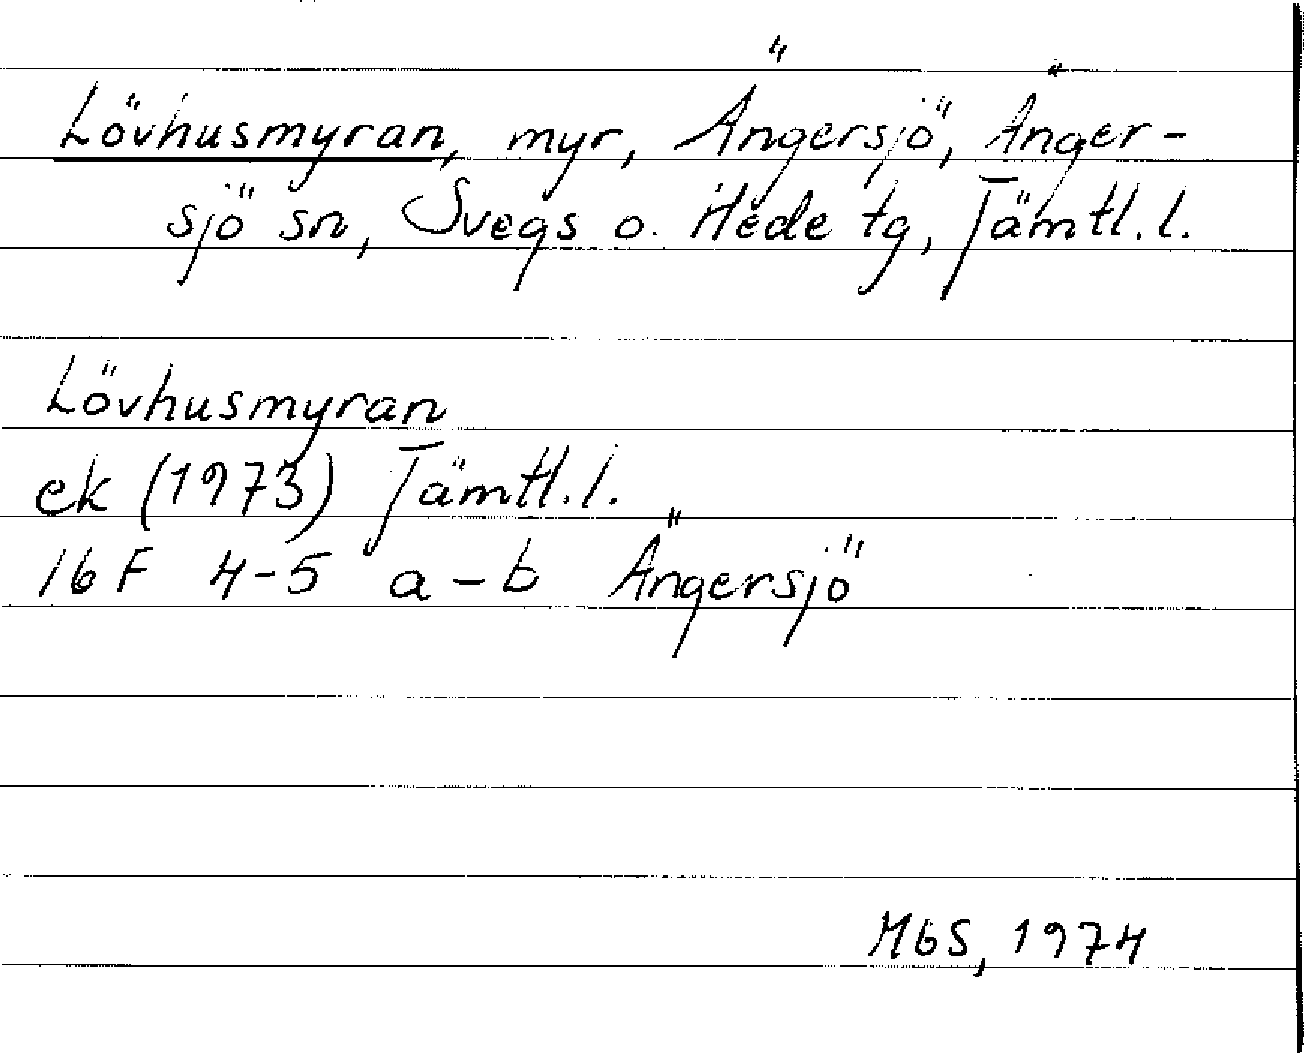 Lövhusmyran, myr, Ängersjö, Änger-
sjö sn, Svegs o. Hede tg, Jämtl. l.
Lövhusmyran
ek (1973) Jämtl. l.
16 F 4-5 a-b Ängersjö
MbS, 1974